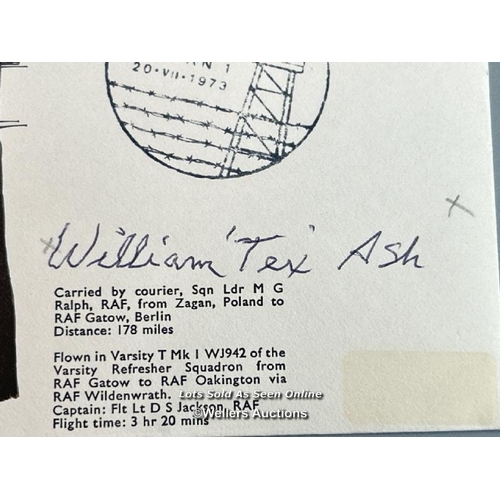 AN 1
20-VII-1973
William 'Tex' Ash
Carried by courier, Sqn Ldr M G
Ralph, RAF, from Zagan, Poland to
RAF Gatow, Berlin
Distance: 178 miles
Flown in Varsity T Mk I WJ942 of the
Varsity Refresher Squadron from
RAF Gatow to RAF Oakington via
RAF Wildenwrath.
Lots Sold As Seen Online
Captain: Flt Lt D S Jackson, RAF
©Wellers Auctions
Flight time: 3 hr 20 mins